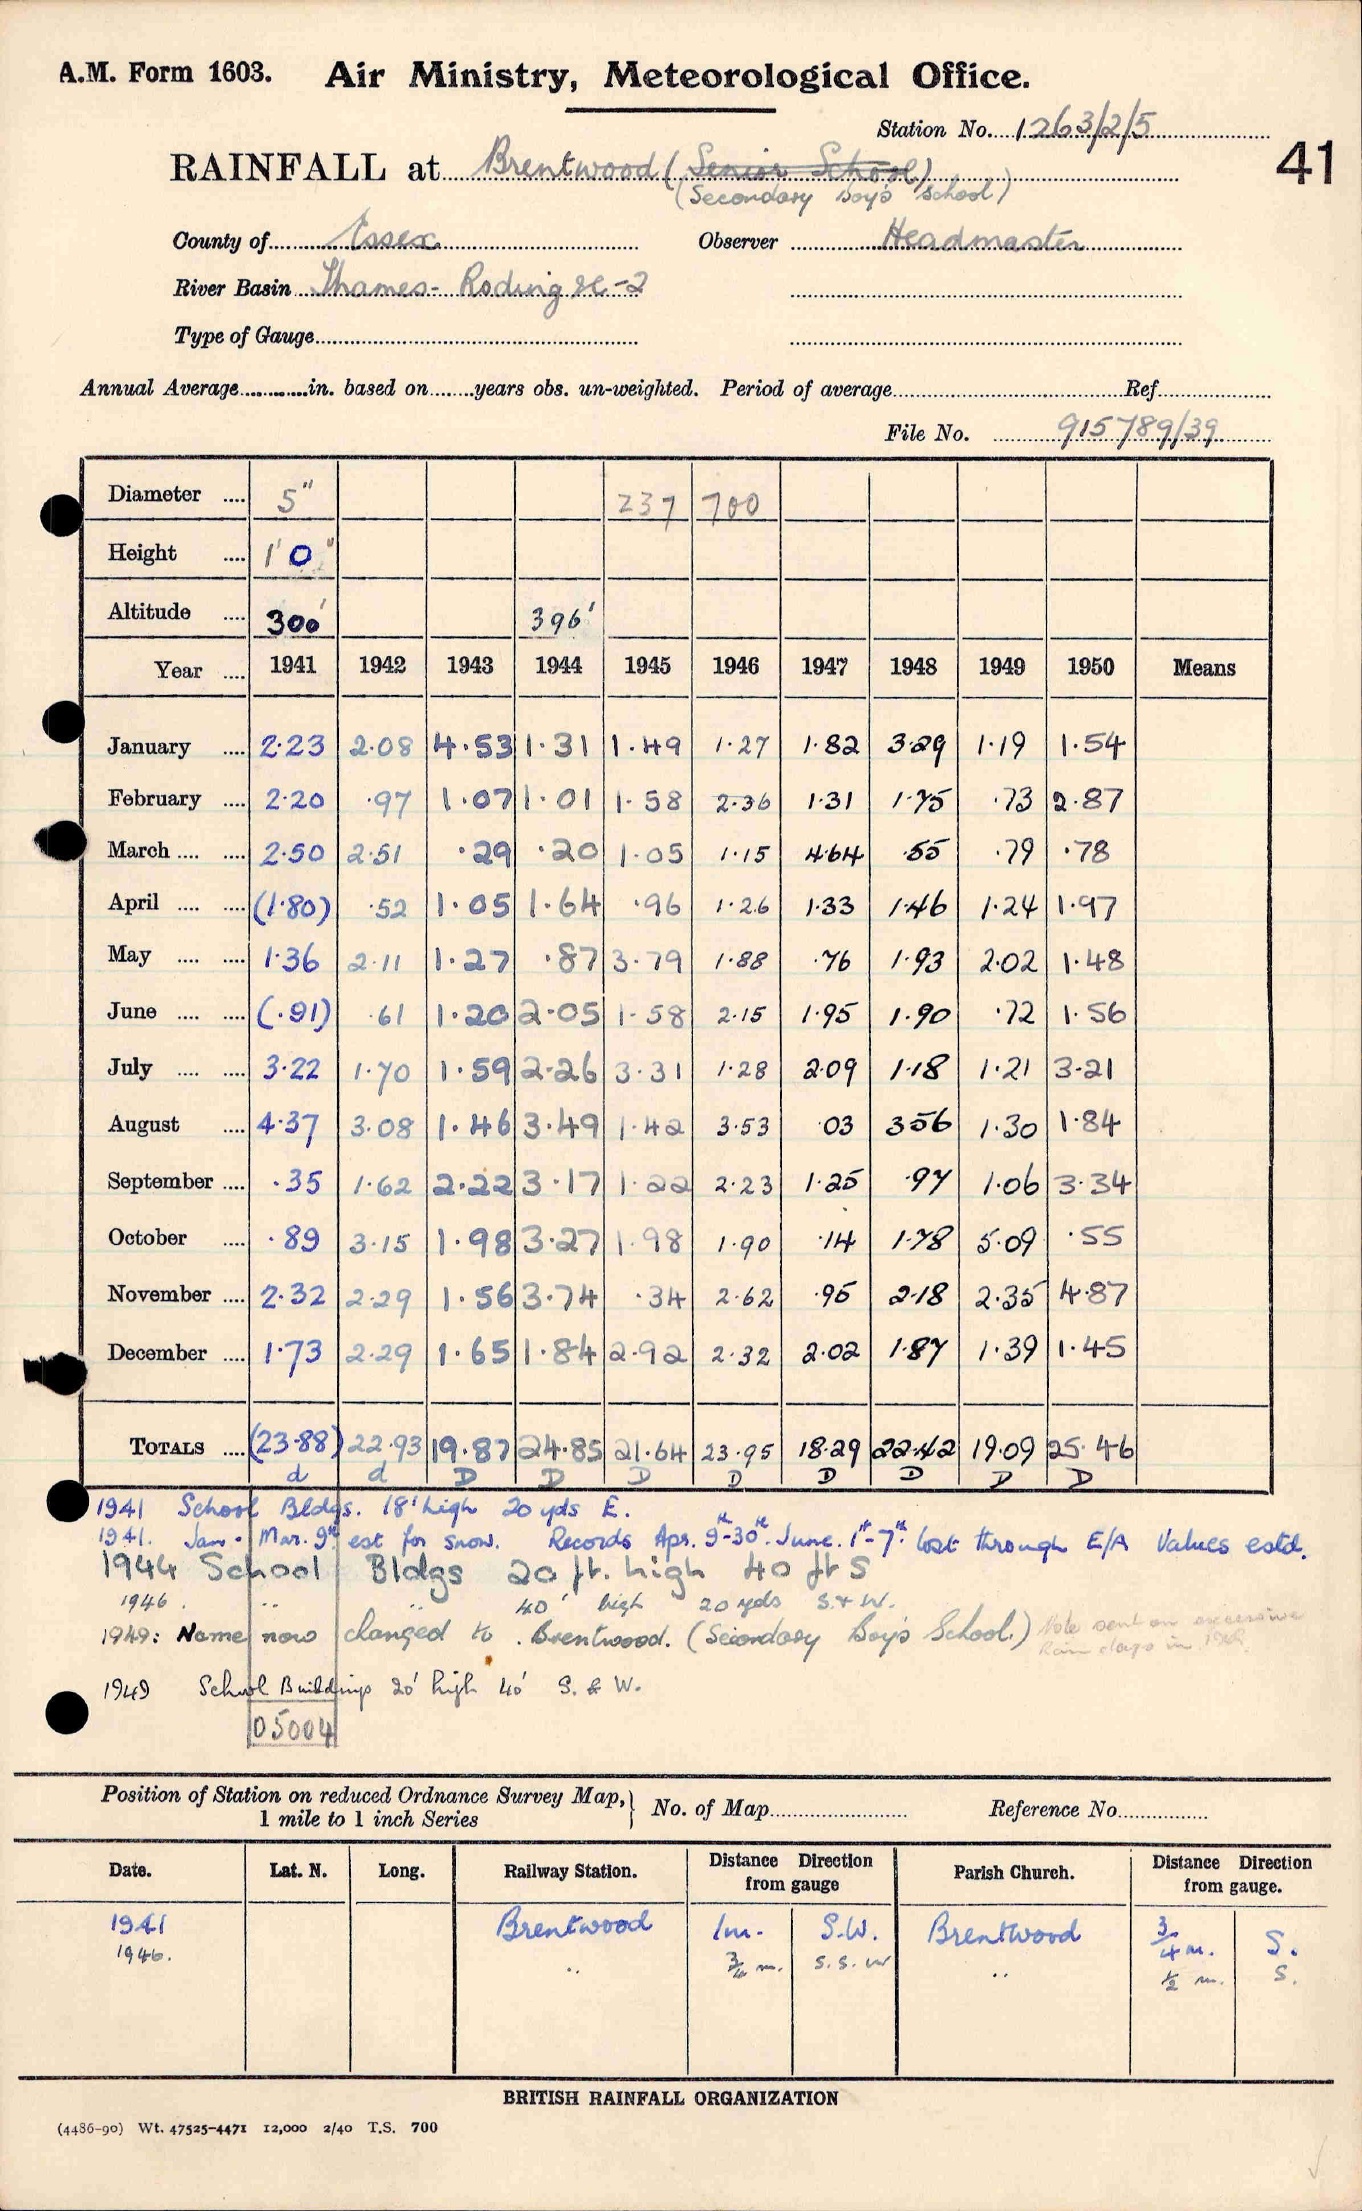 A.M. Form 1603. Air Ministry, Meteorological Office.
Station No. 1263/2/5
41
RAINFALL at Brentwood (Senior School)
(Secondary Boy's School)
County of Essex Observer Headmaster
River Basin Thames - Roding
Type of Gauge
Annual Average in. based on years obs. un-weighted. Period of average Ref
File No. 915789/39
Diameter .... 5" 237 700
Height .... 1' 0"
Altitude .... 300' 396'
Year .... 1941 1942 1943 1944 1945 1946 1947 1948 1949 1950 Means
January .... 2·23 2·08 4·53 1·31 1·49 1·27 1·82 3·29 1·19 1·54
February .... 2·20 ·97 1·07 1·01 1·58 2·36 1·31 1·75 ·73 2·87
March .... .... 2·50 2·51 ·29 ·20 1·05 1·15 4·64 ·55 ·79 ·78
April .... .... (1·80) ·52 1·05 1·64 ·96 1·26 1·33 1·46 1·24 1·97
May .... .... 1·36 2·11 1·27 ·87 3·79 1·88 ·76 1·93 2·02 1·48
June .... .... (·91) ·61 1·20 2·05 1·58 2·15 1·95 1·90 ·72 1·56
July .... .... 3·22 1·70 1·59 2·26 3·31 1·28 2·09 1·18 1·21 3·21
August .... 4·37 3·08 1·46 3·49 1·42 3·53 ·03 3·56 1·30 1·84
September .... ·35 1·62 2·22 3·17 1·22 2·23 1·25 ·97 1·06 3·34
October .... ·89 3·15 1·98 3·27 1·98 1·90 ·14 1·78 5·09 ·55
November .... 2·32 2·29 1·56 3·74 ·34 2·62 ·95 2·18 2·35 4·87
December .... 1·73 2·29 1·65 1·84 2·92 2·32 2·02 1·87 1·39 1·45
TOTALS .... (23·88) 22·93 19·87 24·85 21·64 23·95 18·29 22·42 19·09 25·46
d d D D D D D D D D
1941 School Bldgs. 18' high 20 yds E.
1941. Jan - Mar. 9th est for snow. Records Apr. 9th-30th. June. 1st-7th. lost through E/A Values estd.
1944 School Bldgs 20 ft. high 40 ft S
1946 " " 40' high 20 yds S & W.
1949: Name now changed to Brentwood. (Secondary Boy's School.) Note sent on excessive
Rain days in 1949.
1949 School Buildings 20' high 40' S. & W.
05004
Position of Station on reduced Ordnance Survey Map, } No. of Map Reference No.
1 mile to 1 inch Series
Date. Lat. N. Long. Railway Station. Distance Direction from gauge Parish Church. Distance Direction from gauge.
1941 Brentwood 1m. S.W. Brentwood 3/4 m. S.
1946. " 3/4 m. S.S.W " 1/2 m. S.
BRITISH RAINFALL ORGANIZATION
(4486-90) Wt. 47525-4471 12,000 2/40 T.S. 700